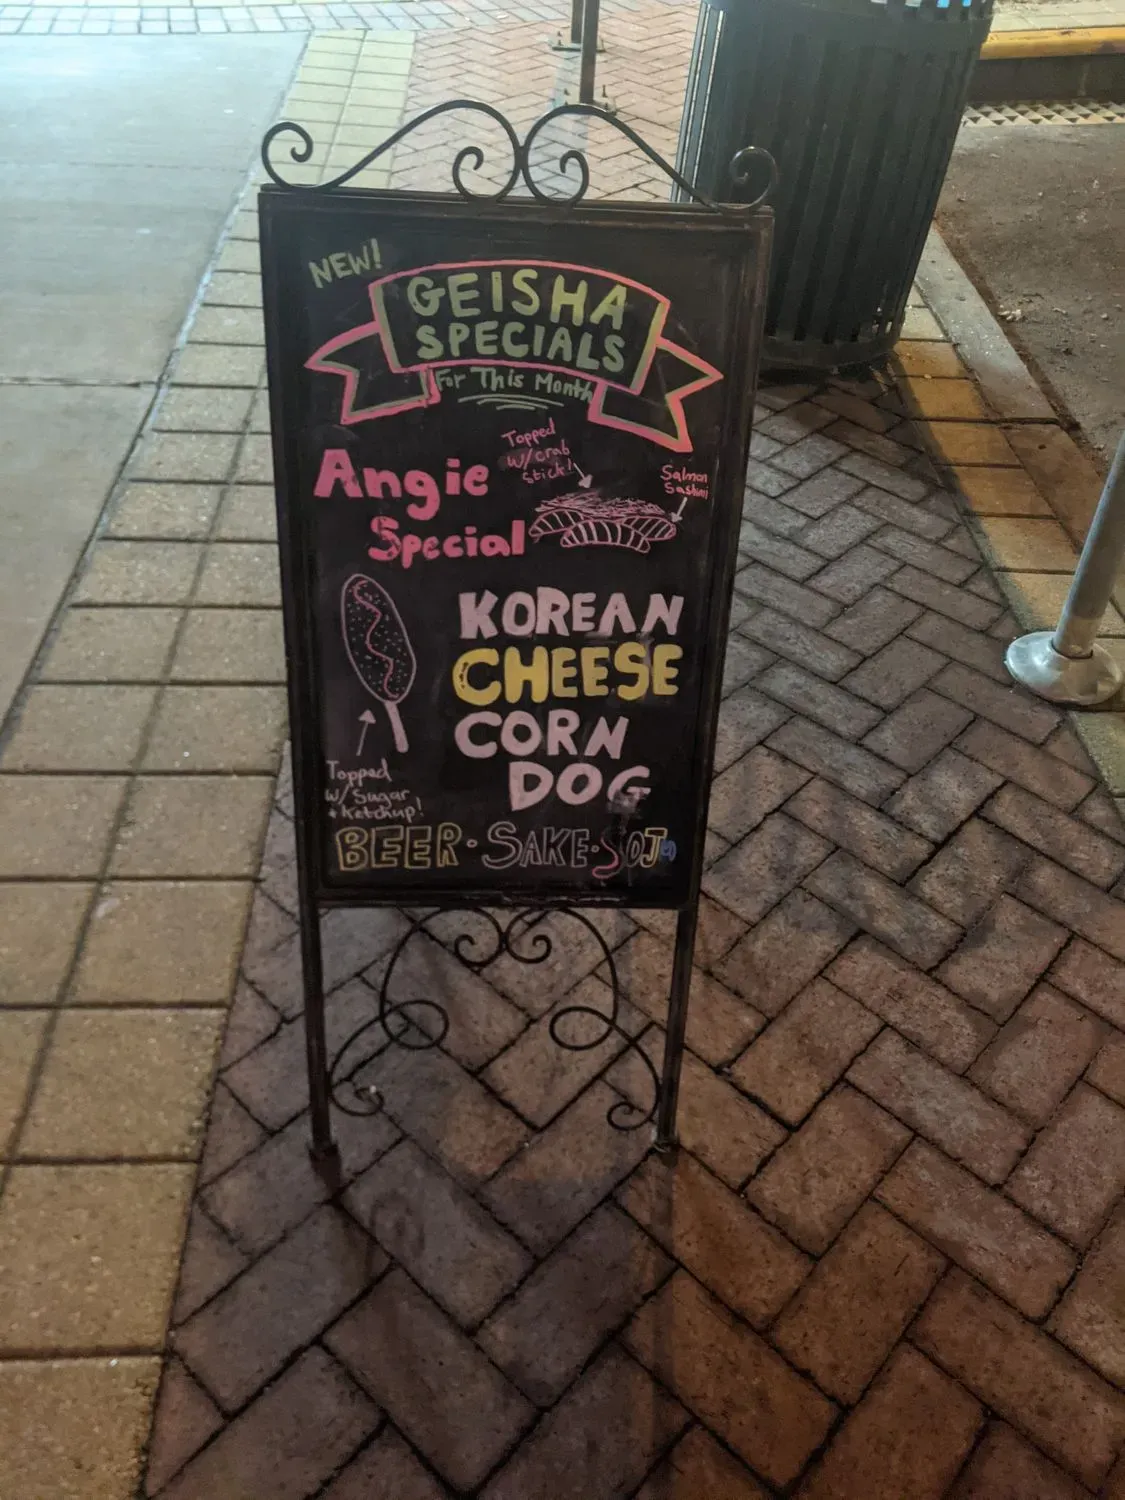 NEW!
GEISHA
SPECIALS
For This Month
Angie
Special
Topped
w/crab
stick!
Salmon
Sashimi
KOREAN
CHEESE
CORN
DOG
Topped
w/Sugar
+ Ketchup!
BEER · SAKE ·